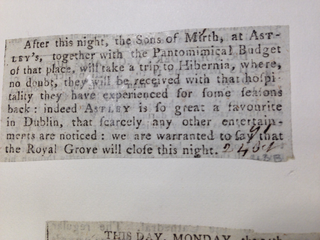 After this night, the Sons of Mirth, at AST-
LEY's, together with the Pantomimical Budget
of that place, will take a trip to Hibernia, where,
no doubt, they will be received with that hospi-
tality they have experienced for ſome ſeaſons
back: indeed ASTLEY is ſo great a favourite
in Dublin, that ſcarcely any other entertain-
ments are noticed: we are warranted to ſay that
the Royal Grove will close this night.
THIS DAY, MONDAY,